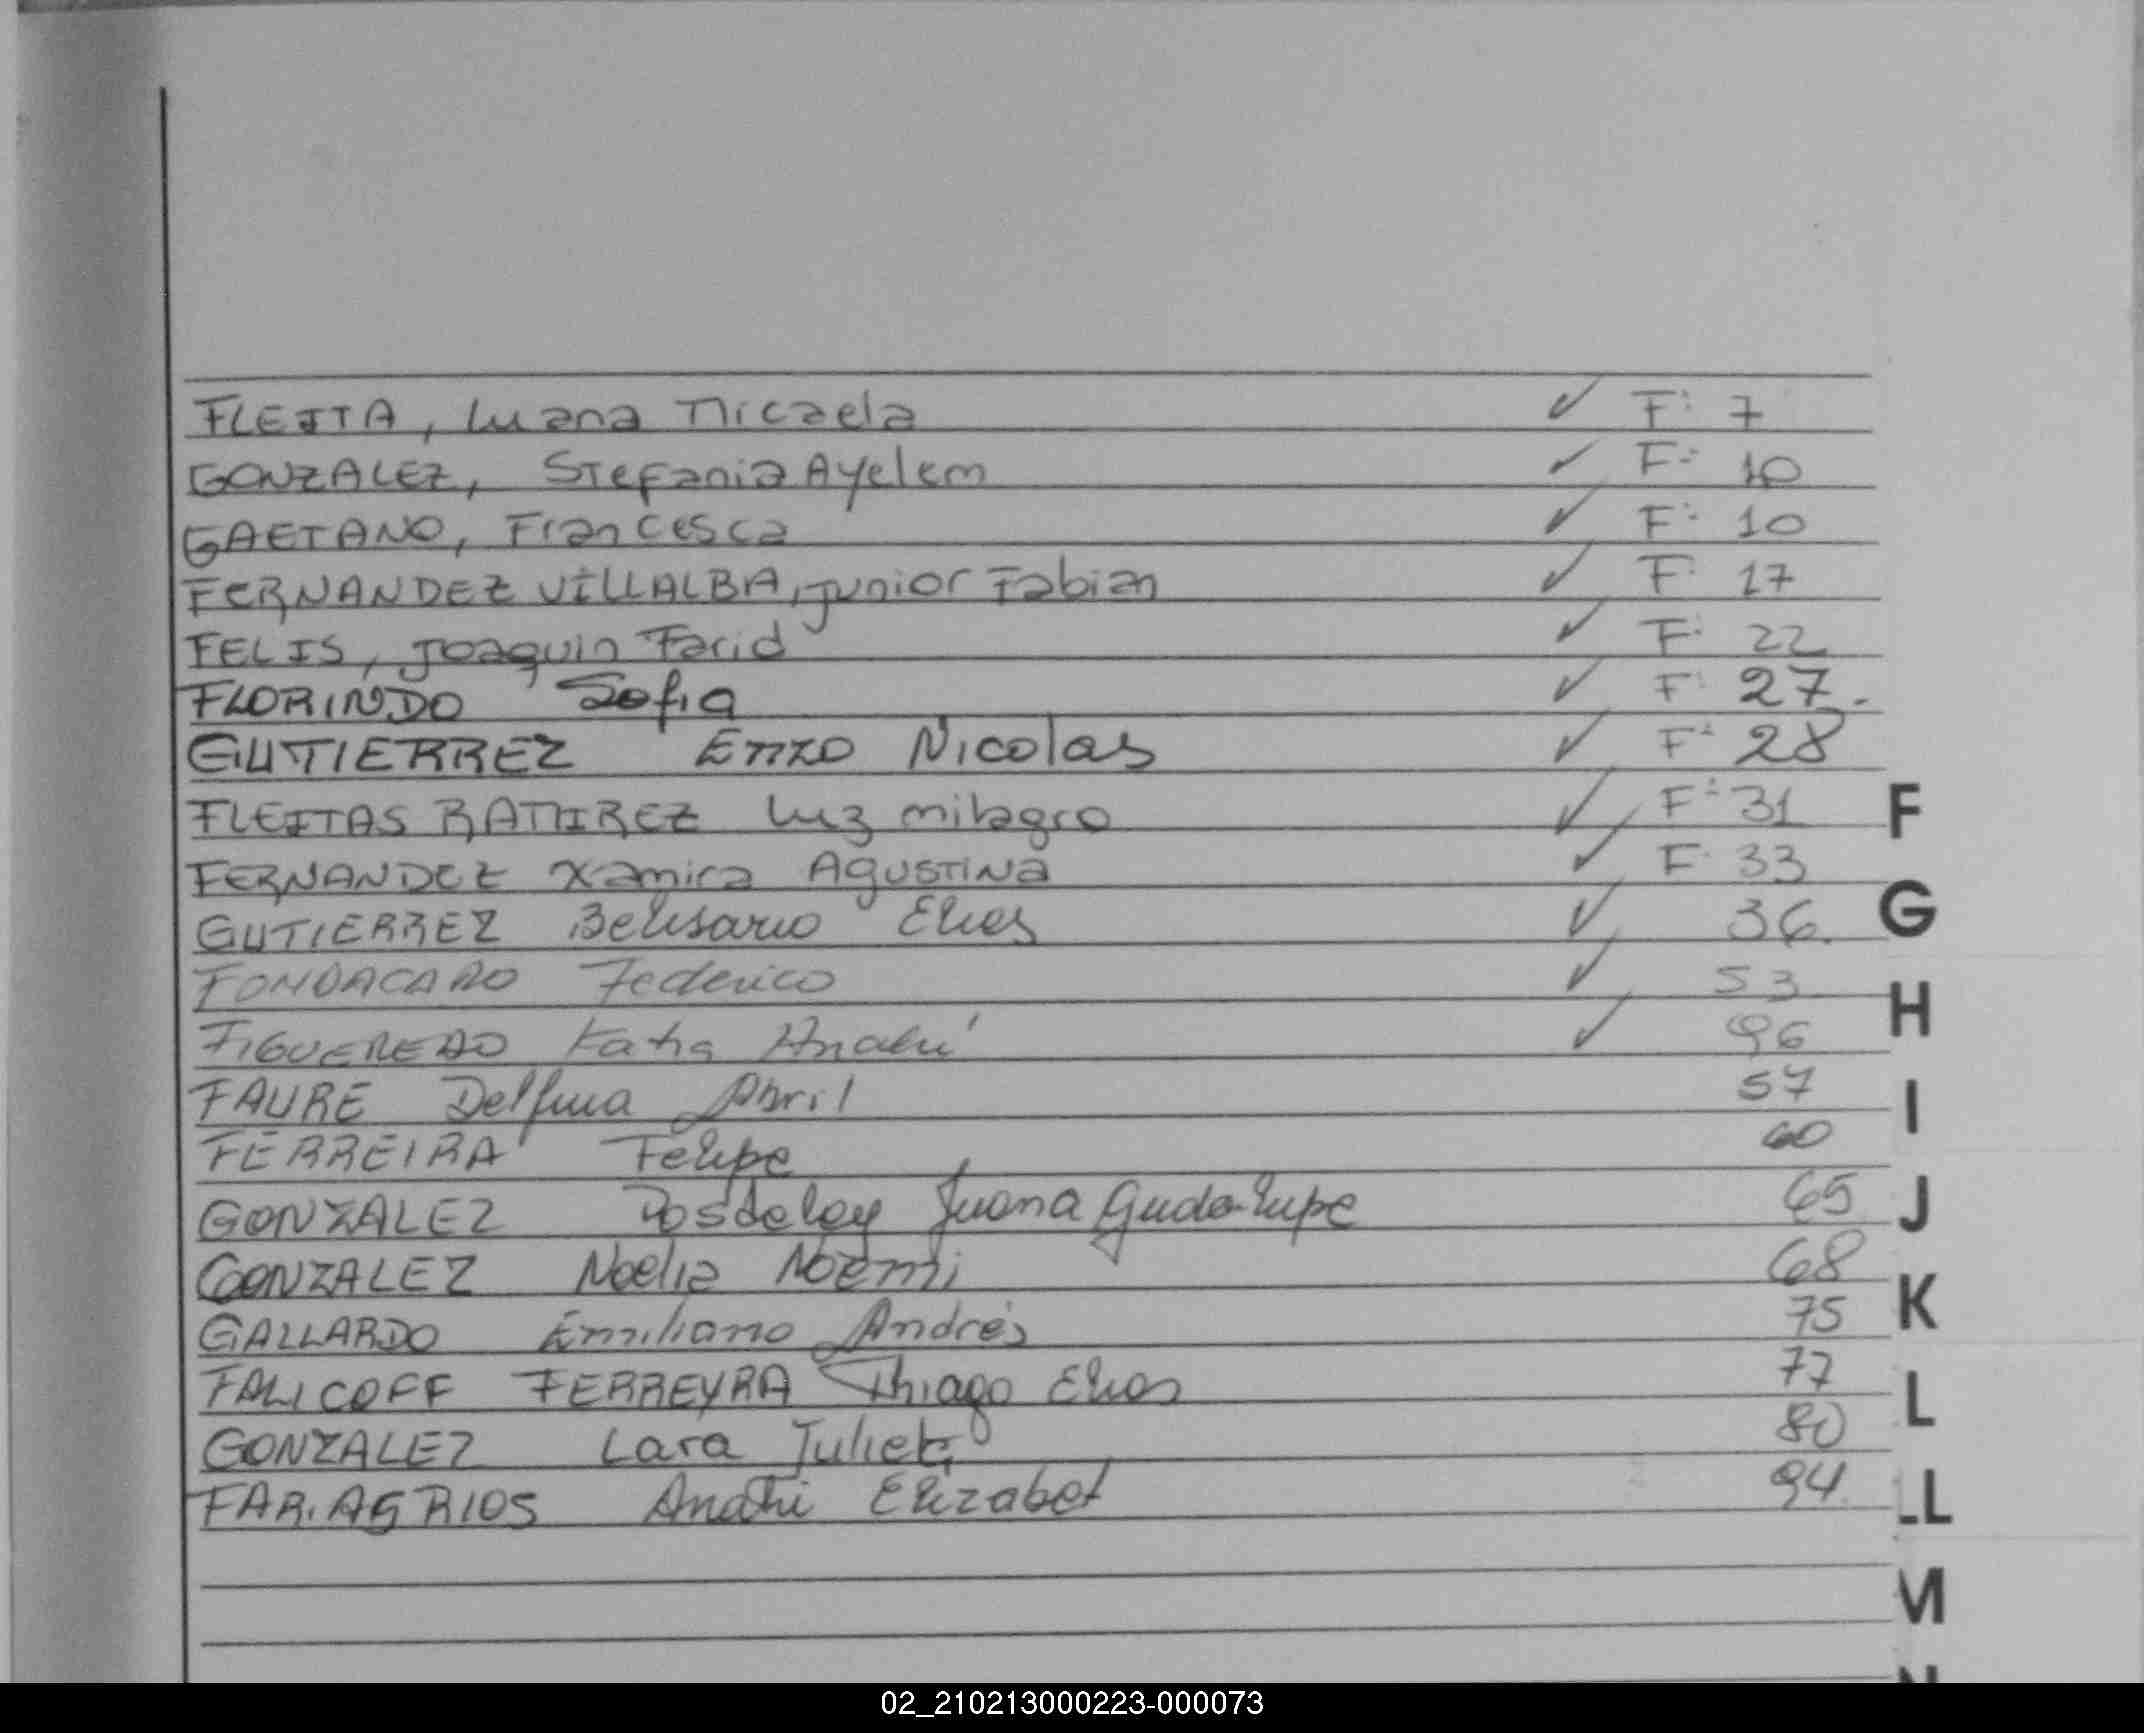 FLEITA, Luana Micaela ✓ F: 7
GONZALEZ, Stefania Ayelem ✓ F: 10
GAETANO, Francesca ✓ F: 10
FERNANDEZ VILLALBA, Junior Fabian ✓ F: 17
FELIS, Joaquin Farid ✓ F: 22
FLORINDO Sofia ✓ F: 27.
GUTIERREZ Enzo Nicolas ✓ F: 28
FLEITAS RAMIREZ Luz milagro ✓ F: 31
F
FERNANDEZ Xamira AGUSTINA ✓ F: 33
GUTIERREZ Belisario Elias ✓ 36.
G
FONDACARO Federico ✓ 53
H
FIGUEREDO Katia Anahí ✓ 96
FAURE Delfina Abril 57
I
FERREIRA Felipe 60
GONZALEZ Juana Guadalupe 65
J
GONZALEZ Noelia Noemi 68
K
GALLARDO Emiliano Andrés 75
FALICOFF FERREYRA Thiago Elias 77
L
GONZALEZ Lara Julieta 80
FARIAS RIOS Anahi Elizabet 94
LL
M
N
02_210213000223-000073